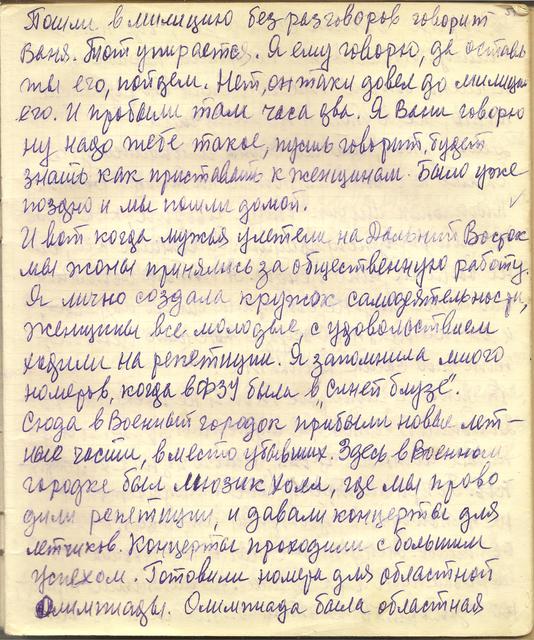 Пошли в милицию без разговоров говорит
Ваня. Тот упирается. Я ему говорю, да оставь
ты его, пойдем. Нет, он таки довел до милиции
его. И пробыли там часа два. Я Вани говорю
ну надо тебе такое, пусть говорит, будет
знать как приставать к женщинам. Было уже
поздно и мы пошли домой.
И вот когда мужья улетели на Дальний Восток
мы жоны принялись за общественную работу.
Я лично создала кружок самодеятельности,
женщины все молодые, с удовольствием
ходили на репетиции. Я запомнила много
номеров, когда в ФЗУ была в "Синей блузе".
Сюда в Военный городок прибыли новые лет-
ные части, вместо убывших. Здесь в Военном
городке был мюзик холл, где мы прово
дили репетиции, и давали концерты для
летчиков. Концерты проходили с большим
успехом. Готовили номера для областной
Олимпиады. Олимпиада была областная